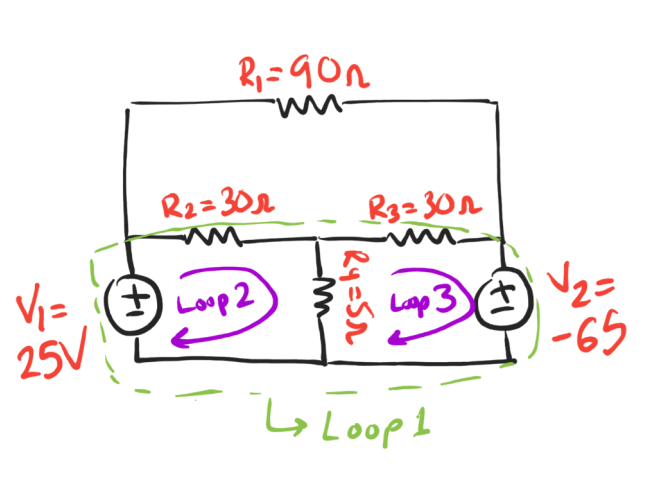 R₁=90Ω
R₂=30Ω
R₃=30Ω
R4=5Ω
V₁=
25V
+
-
Loop2
Loop3
+
-
V₂=
-65
Loop1